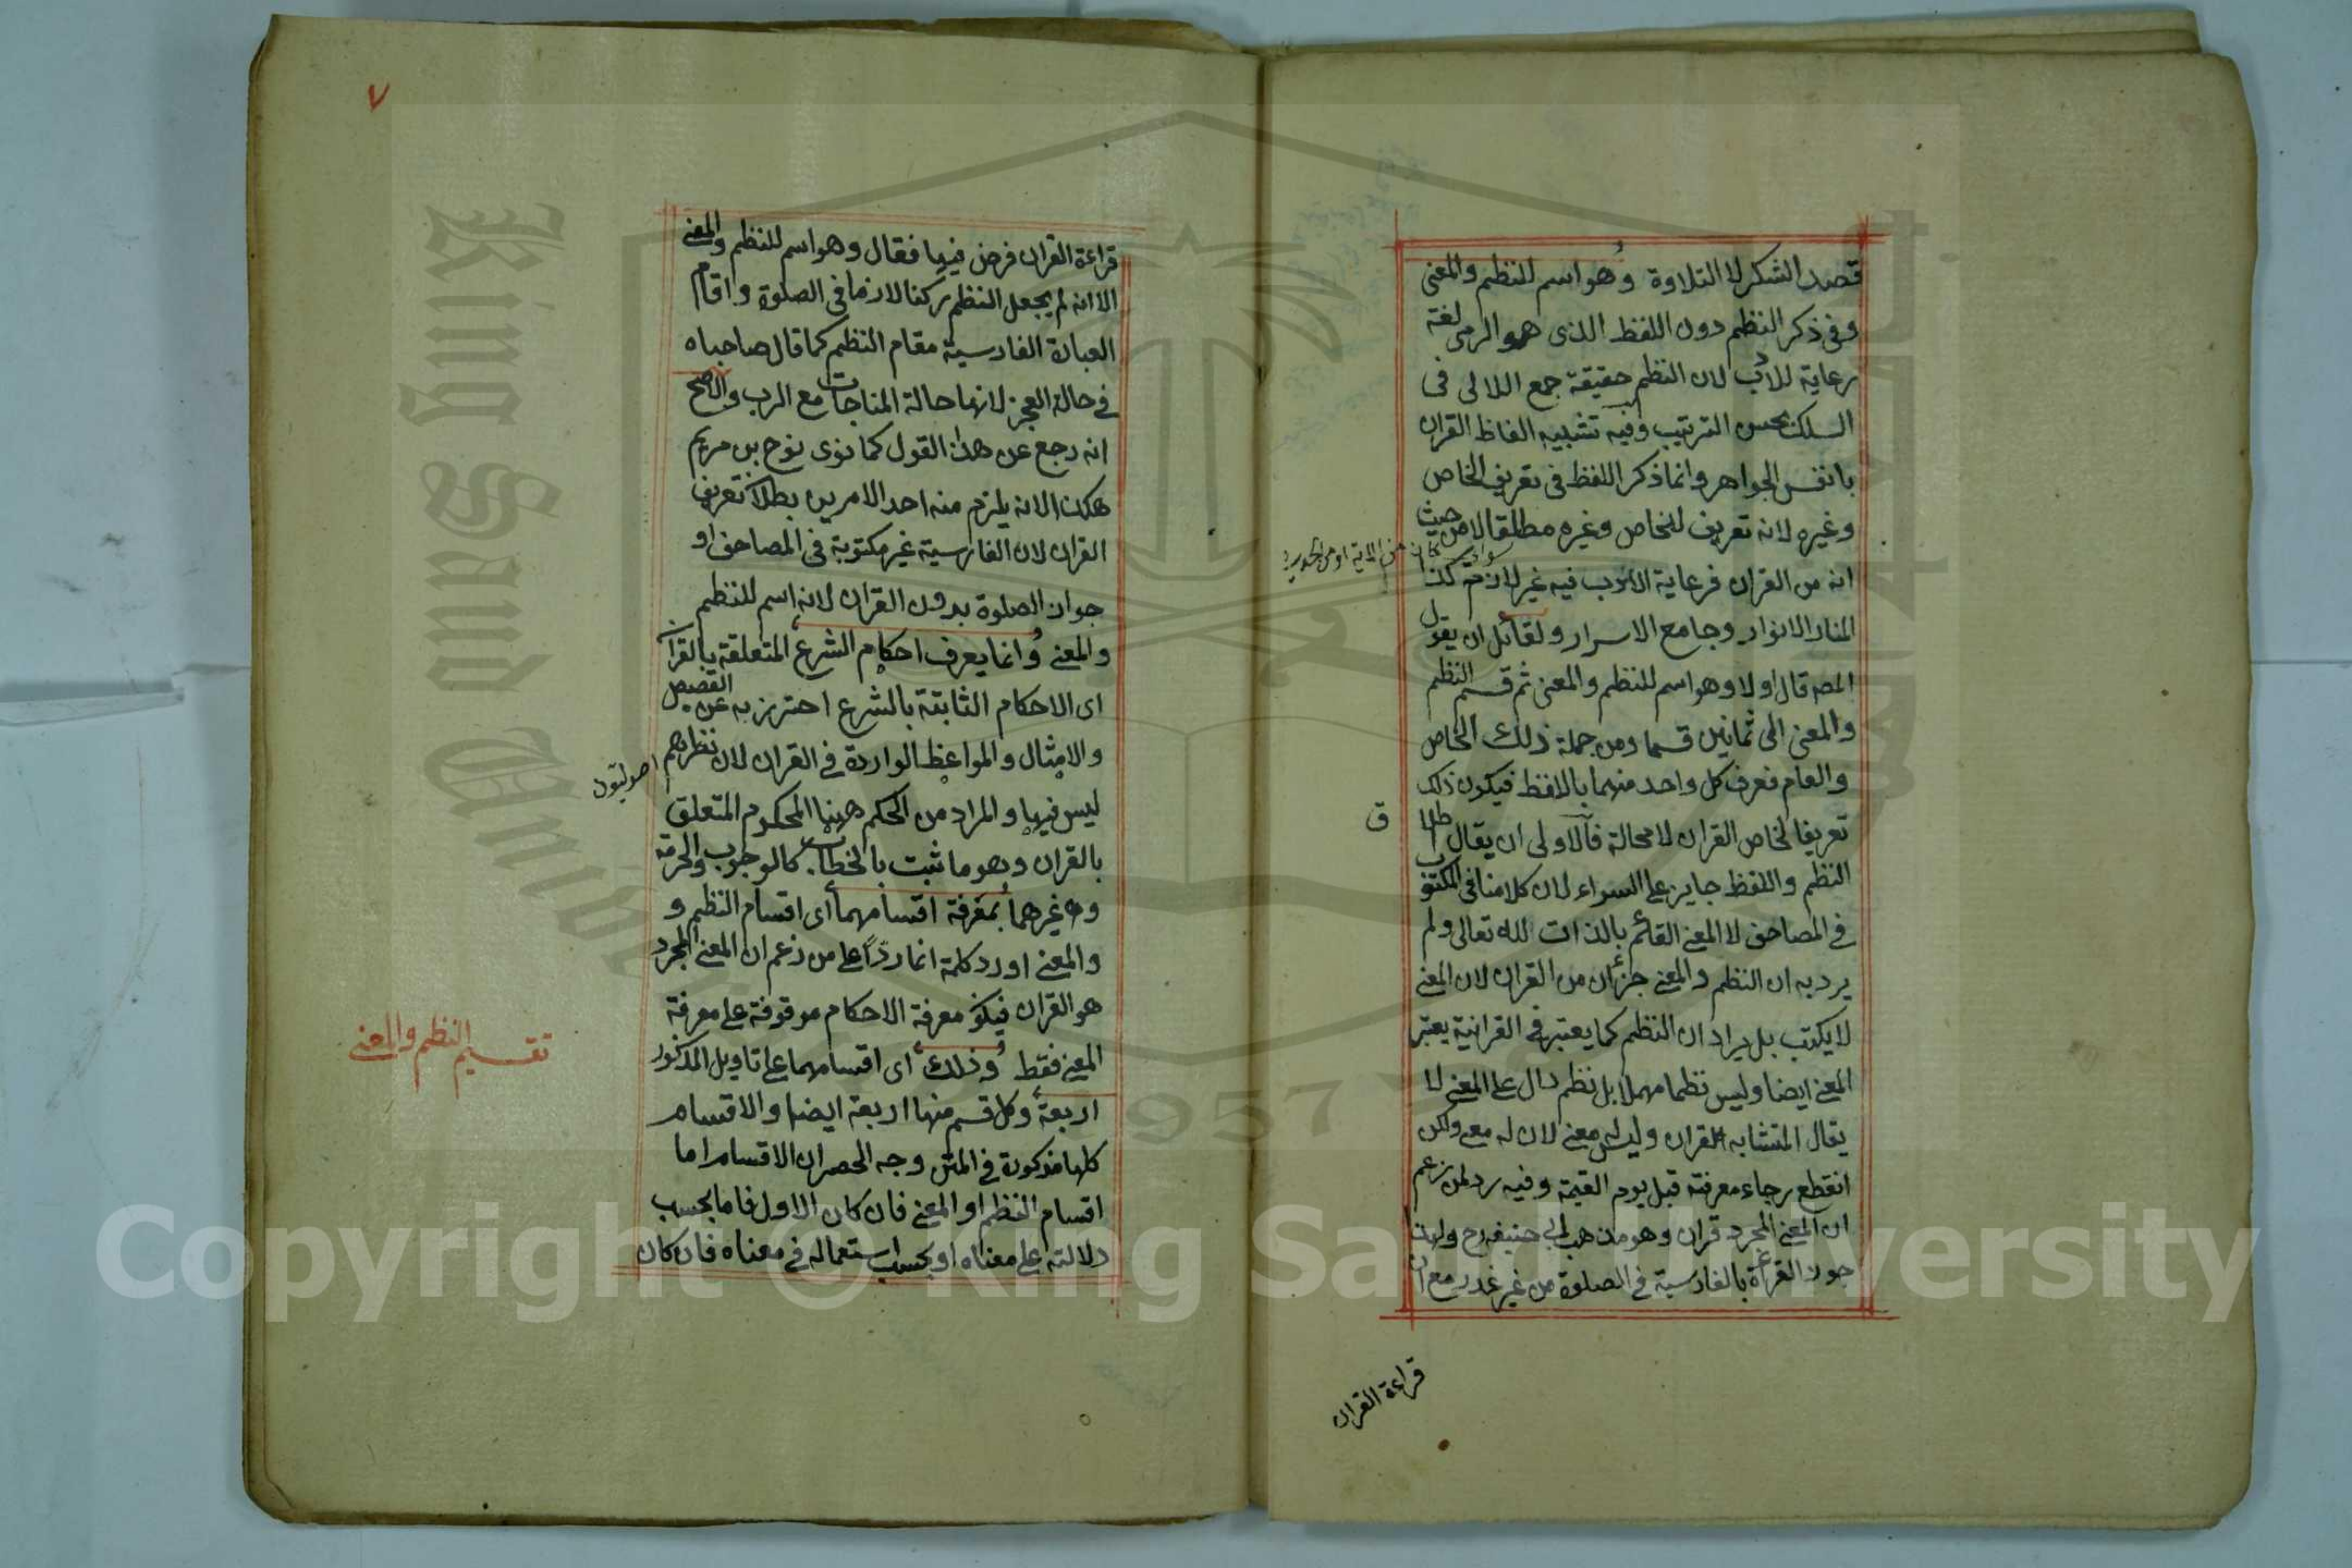 قصد الشكر لا التلاوة وهو اسم للنظم والمعنى
وفى ذكر النظم دون اللفظ الذى هو الرمى لغة
رعاية للادب لان النظم حقيقة جمع اللالى فى
السلك بحسن الترتيب وفيه تشبيه الفاظ القران
بانفس الجواهر وانما ذكر اللفظ فى تعريف الخاص
وغيره لانه تعريف للخاص وغيره مطلقا لا من حيث
انه من القران فرعاية الادب فيه غير لازم كذا
المنار الانوار وجامع الاسرار ولقائل ان يقول
المصه قال اولا وهو اسم للنظم والمعنى ثم قسم النظم
والمعنى الى ثمانين قسما ومن جملة ذلك الخاص
والعام فعرف كل واحد منهما بالافظ فيكون ذلك
تعريفا لخاص القران لا محالة فالاولى ان يقال اطلا
ق
النظم واللفظ جايز على السواء لان كلامنا فى المكتوب
فى المصاحف لا المعنى القائم بالذات لله تعالى ولم
يرد به ان النظم والمعنى جزءان من القران لان المعنى
لا يكتب بل يراد ان النظم كما يعتبر فى القرانية يعتبر
المعنى ايضا وليس نظما مهملا بل نظم دال على المعنى لا
يقال المتشابه القران وليس معنى لان له معنى ولكن
انقطع رجاء معرفته قبل يوم القيمة وفيه رد لمن زعم
ان المعنى المجرد قران وهو مذهب ابى حنيفه رح ولهذا
جوز القراءة بالفارسية فى الصلوة من غير عذر مع ان
قراءة القران
٧
قراءة القران فرض فيها فقال وهو اسم للنظم والمعنى
الا انه لم يجعل النظم ركنا لازما فى الصلوة واقام
العبارة الفارسية مقام النظم كما قال صاحباه
فى حالة العجز لانها حالة المناجات مع الرب والاصح
انه رجع عن هذا القول كما نوى نوح بن مريم
هكذا لانه يلزم منه احد الامرين بطلان تعريف
القران لان الفارسية غير مكتوبة فى المصاحف او
جواز الصلوة بدون القران لانه اسم للنظم
والمعنى وانما يعرف احكام الشرع المتعلقة بالقران
اى الاحكام الثابتة بالشرع احترز به عن القصص
والامثال والمواعظ الواردة فى القران لان نظرهم
اصوليون
ليس فيها والمراد من الحكم ههنا المحكوم المتعلق
بالقران وهو ما ثبت بالخطاب كالوجوب والحرمة
وغيرهما بمعرفة اقسامهما اى اقسام النظم و
والمعنى اورد كلمة انما ردا على من زعم ان المعنى المجرد
هو القران فيكون معرفة الاحكام موقوفة على معرفة
المعنى فقط وذلك اى اقسامهما على تاويل المذكور
تقسيم النظم والمعنى
اربعة وكل قسم منها اربعة ايضا والاقسام
كلها مذكورة فى المتن وجه الحصر ان الاقسام اما
اقسام النظم او المعنى فان كان الاول فاما بحسب
دلالته على معناه او بحسب استعماله فى معناه فان كان
Copyright © King Saud University
1957